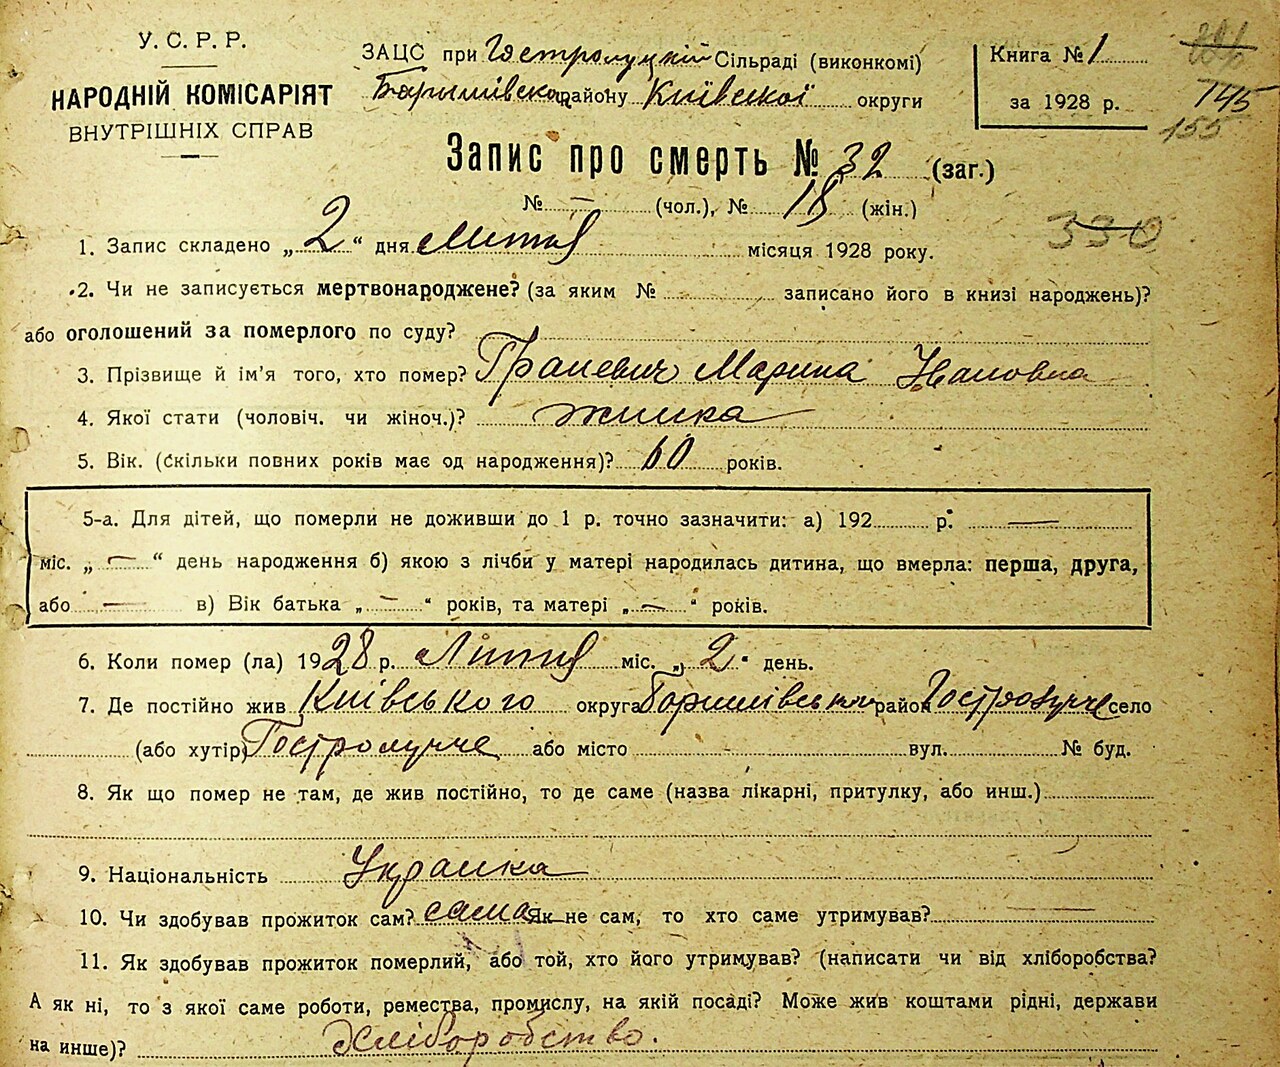 У. С. Р. Р.
НАРОДНІЙ КОМІСАРІЯТ
ВНУТРІШНІХ СПРАВ
ЗАЦС при Гостролуцкій Сільраді (виконкомі)
району Київскої округи
Книга № 1
за 1928 р.
145
155
Запис про смерть № 32 (заг.)
№ — (чол.), № 18 (жін.)
330
1. Запис складено „ 2 “ дня Лютня місяця 1928 року.
2. Чи не записується мертвонароджене? (за яким № записано його в книзі народжень)?
або оголошений за померлого по суду?
3. Прізвище й ім'я того, хто помер? Марина Ивановна
4. Якої стати (чоловіч. чи жіноч.)? жинка
5. Вік. (Скільки повних років має од народження)? 60 років.
5-а. Для дітей, що померли не доживши до 1 р. точно зазначити: а) 192 р. —
міс. „ — “ день народження б) якою з лічби у матері народилась дитина, що вмерла: перша, друга,
або — в) Вік батька „ — “ років, та матері „ — “ років.
6. Коли помер (ла) 1928 р. Лютня міс. „ 2 “ день.
7. Де постійно жив Київського округа район Гостролучче село
(або хутір) Гостролучче або місто вул. № буд.
8. Як що помер не там, де жив постійно, то де саме (назва лікарні, притулку, або инш.)
9. Національність Украинка
10. Чи здобував прожиток сам? сама Як не сам, то хто саме утримував? —
11. Як здобував прожиток померлий, або той, хто його утримував? (написати чи від хліборобства?
А як ні, то з якої саме роботи, ремества, промислу, на якій посаді? Може жив коштами рідні, держави
на инше)? Хліборобство.